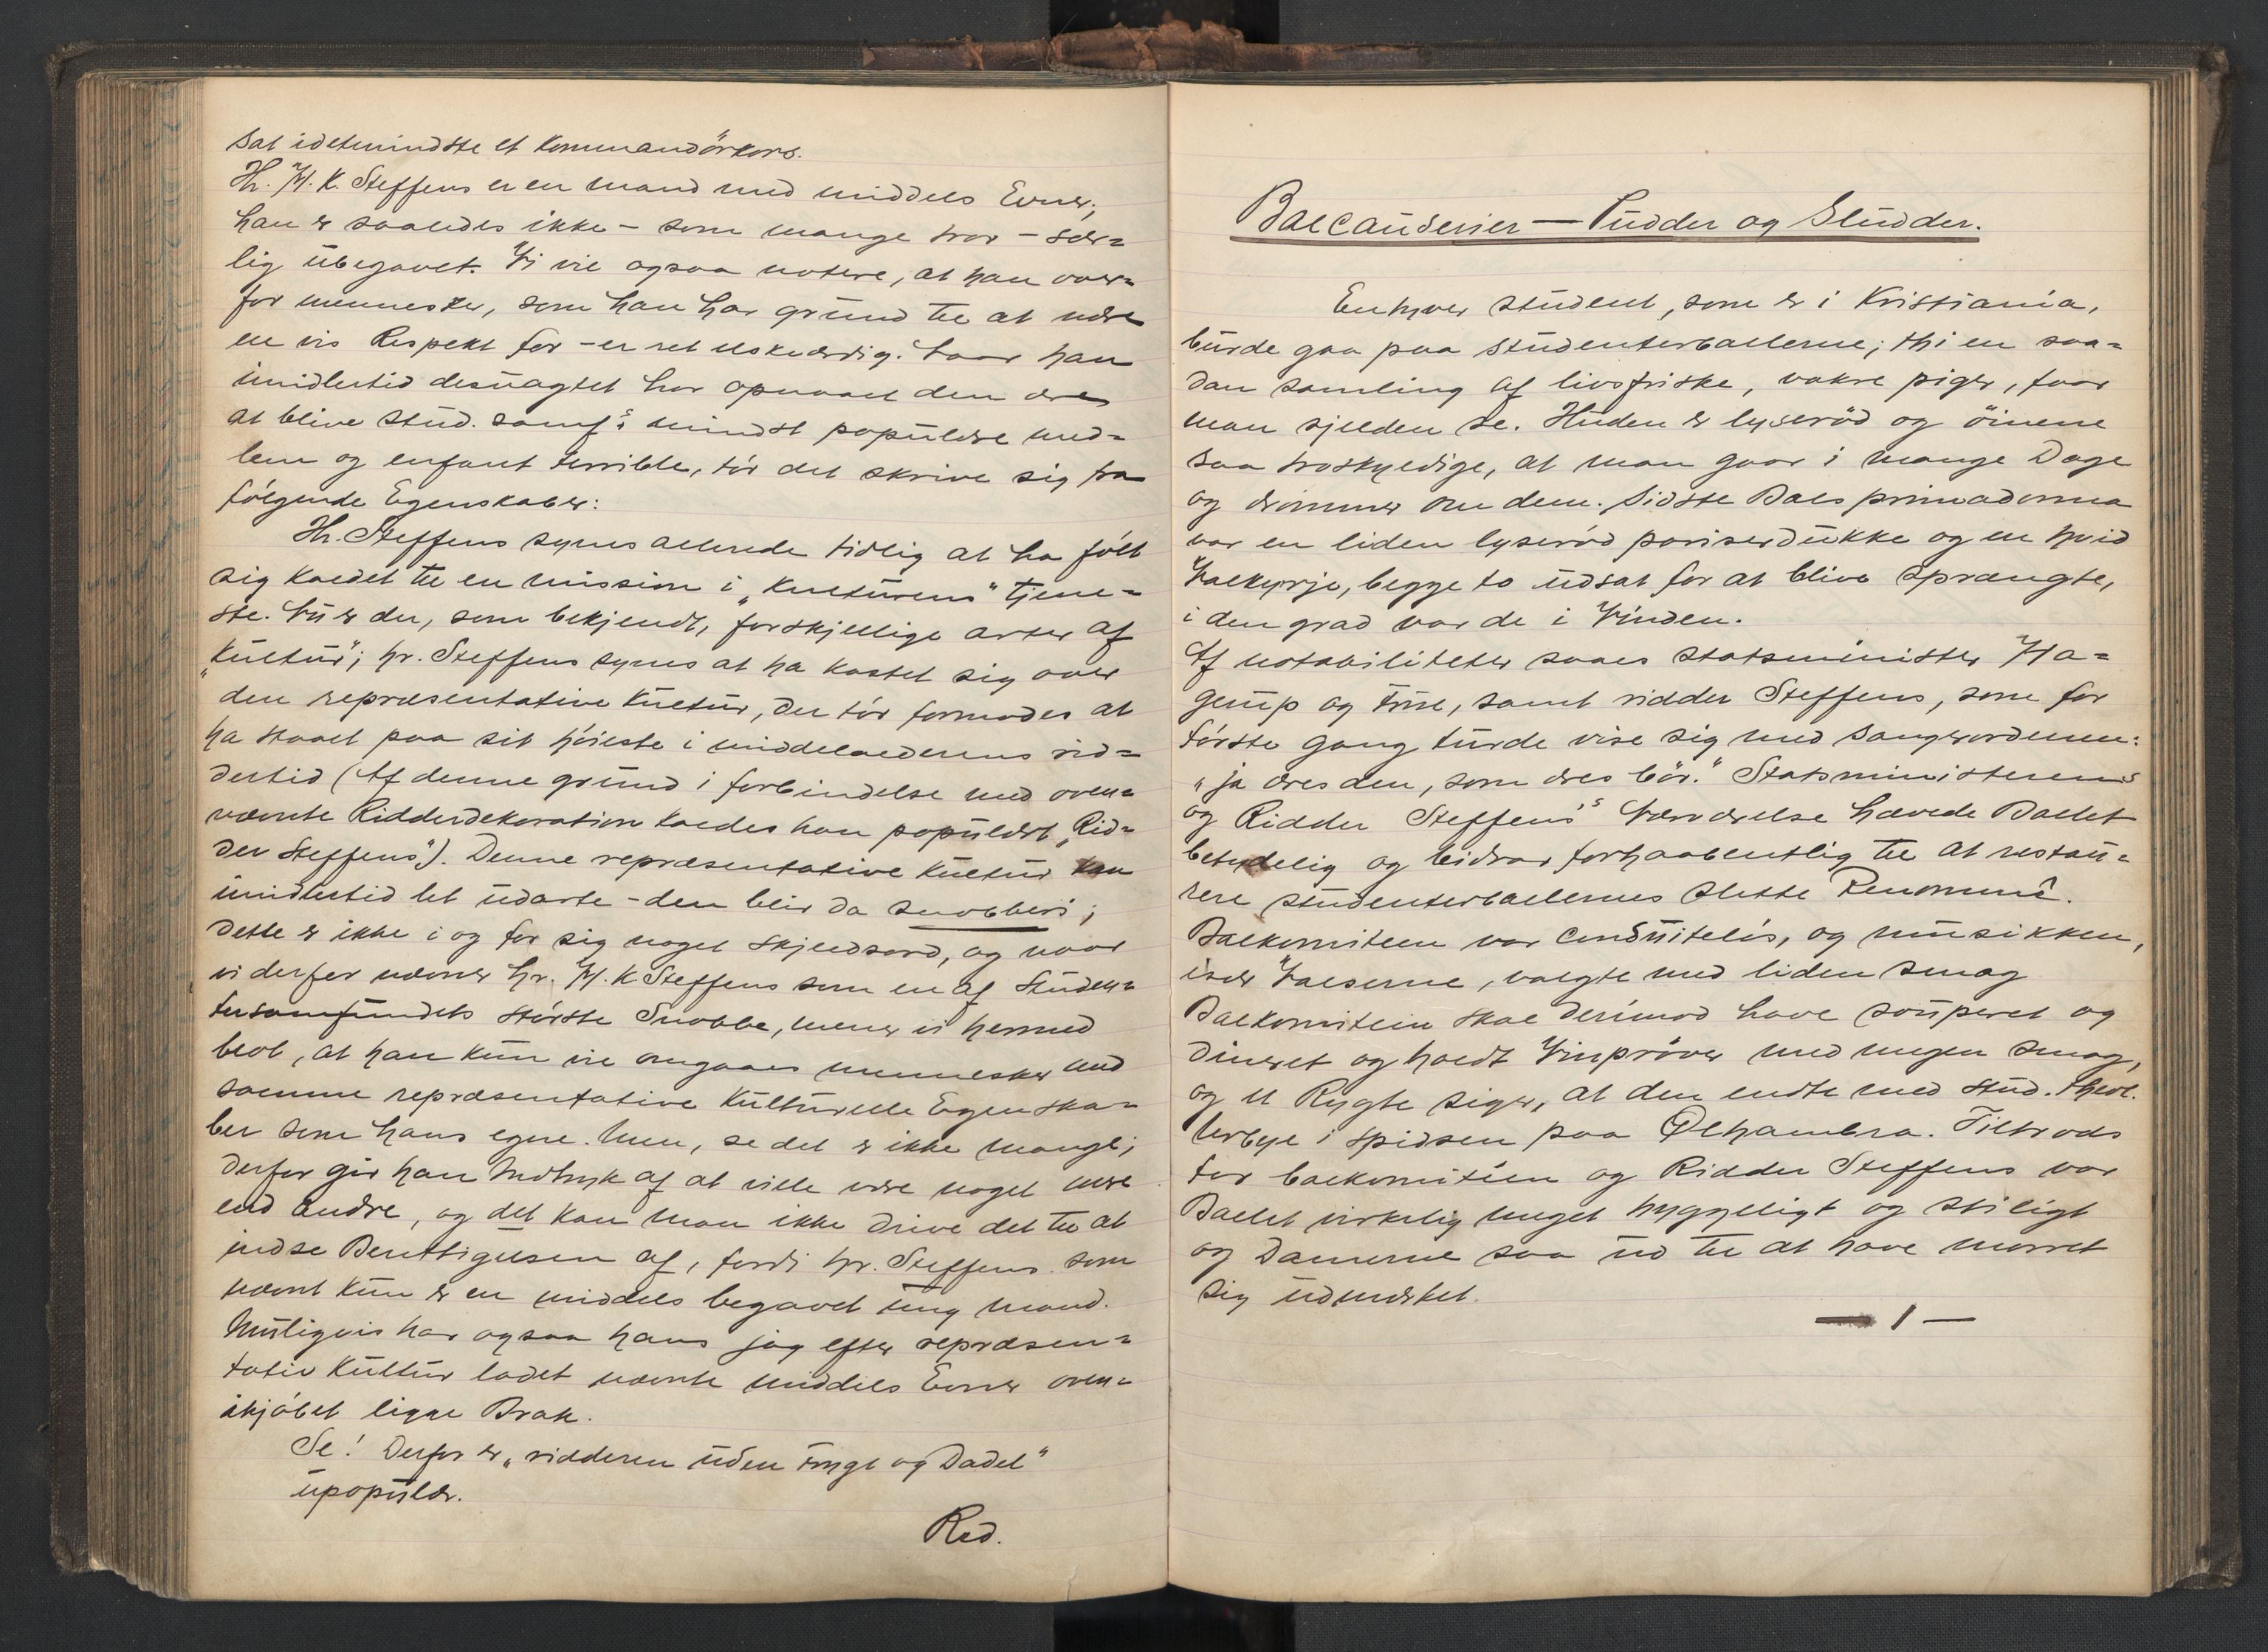 sat idetmindste et Kommandörkors.
Hr. H. K. Steffens er en mand med middels Evner;
han er saaledes ikke – som mange tror – sær=
lig übegavet. Vi vil ogsaa notere, at han over=
for mennesker, som han har grund til at nære
en vis Respekt for – er ret elskværdig. Naar han
imidlertid desuagtet har opnaaet den ære
at blive Stud. samf.s mindst populære med=
lem og enfant terrible, tör det skrive sig fra
fölgende Egenskaber:
Hr. Steffens synes allerede tidlig at ha fölt
sig kaldet til en mission i „Kulturens" tjene=
ste. Nu er der, som bekjendt, forskjellige arter af
„Kultur"; hr. Steffens synes at ha kastet sig over
den repræsentative Kultur, der tör formodes at
ha staaet paa sit höieste i middelalderens rid=
dertid (Af denne grund i forbindelse med oven=
nævnte Ridderdekoration kaldes han populært „Rid=
der Steffens"). Denne repræsentative Kultur kan
imidlertid let udarte – den blir da snobberi;
dette er ikke i og for sig noget skjeldsord, og naar
vi derfor nævner hr. H. K Steffens som en af Studen=
tersamfundets störste Snobbe, mener vi hermed
blot, at han kun vil omgaaes mennesker med
samme repræsentative Kulturelle Egenska=
ber som hans egne. Men, se det er ikke mange;
derfor gir han Indtryk af at ville være noget mere
end andre, og det kan man ikke drive det til at
indse Berettigelsen af, fordi hr. Steffens som
nævnt kun er en middels begavet ung mand.
Muligvis har ogsaa hans jag efter repræsen=
tativ Kultur ladet nævnte middels Evner oven=
ikjöbet ligge Brak.
Se! Derfor er „ridderen uden Frygt og Dadel"
upopulær.
Red.
Balcauserier — Pudder og Sludder.
Enhver student, som er i Kristiania,
burde gaa paa studenterballerne; thi en saa=
dan samling af livsfriske, vakre piger, faar
man sjelden se. Huden er lyseröd og öinene
saa troskyldige, at man gaar i mange Dage
og drömmer om dem. Sidste Bals primadonna
var en liden lyseröd pariserdukke og en hvid
Valkyrje, begge to udsat for at blive sprængte,
i den grad var de i Vinden.
Af notabiliteter saaes statsminister Ha=
gerup og Frue, samt ridder Steffens, som for
förste gang turde vise sig med Sangerordenen:
„ja æres den, som æres bör." Statsministerens
og Ridder Steffens's Nærværelse hævede Ballet
betydelig og bidrar forhaabentlig til at restau=
rere studenterballernes slette Renommé.
Balkomiteen var conduitelös, og musikken,
især Valserne, valgte med liden smag
Balkomiteen skal derimod have souperet og
dineret og holdt Vinpröver med megen smag,
og et Rygte siger, at den endte med stud. theol.
Nerbye i spidsen paa Alhambra. Tiltrods
for balkomitéen og Ridder Steffens var
Ballet virkelig meget hyggeligt og stiligt
og Damerne saa ud til at have moret
sig udmærket.
— 1 —